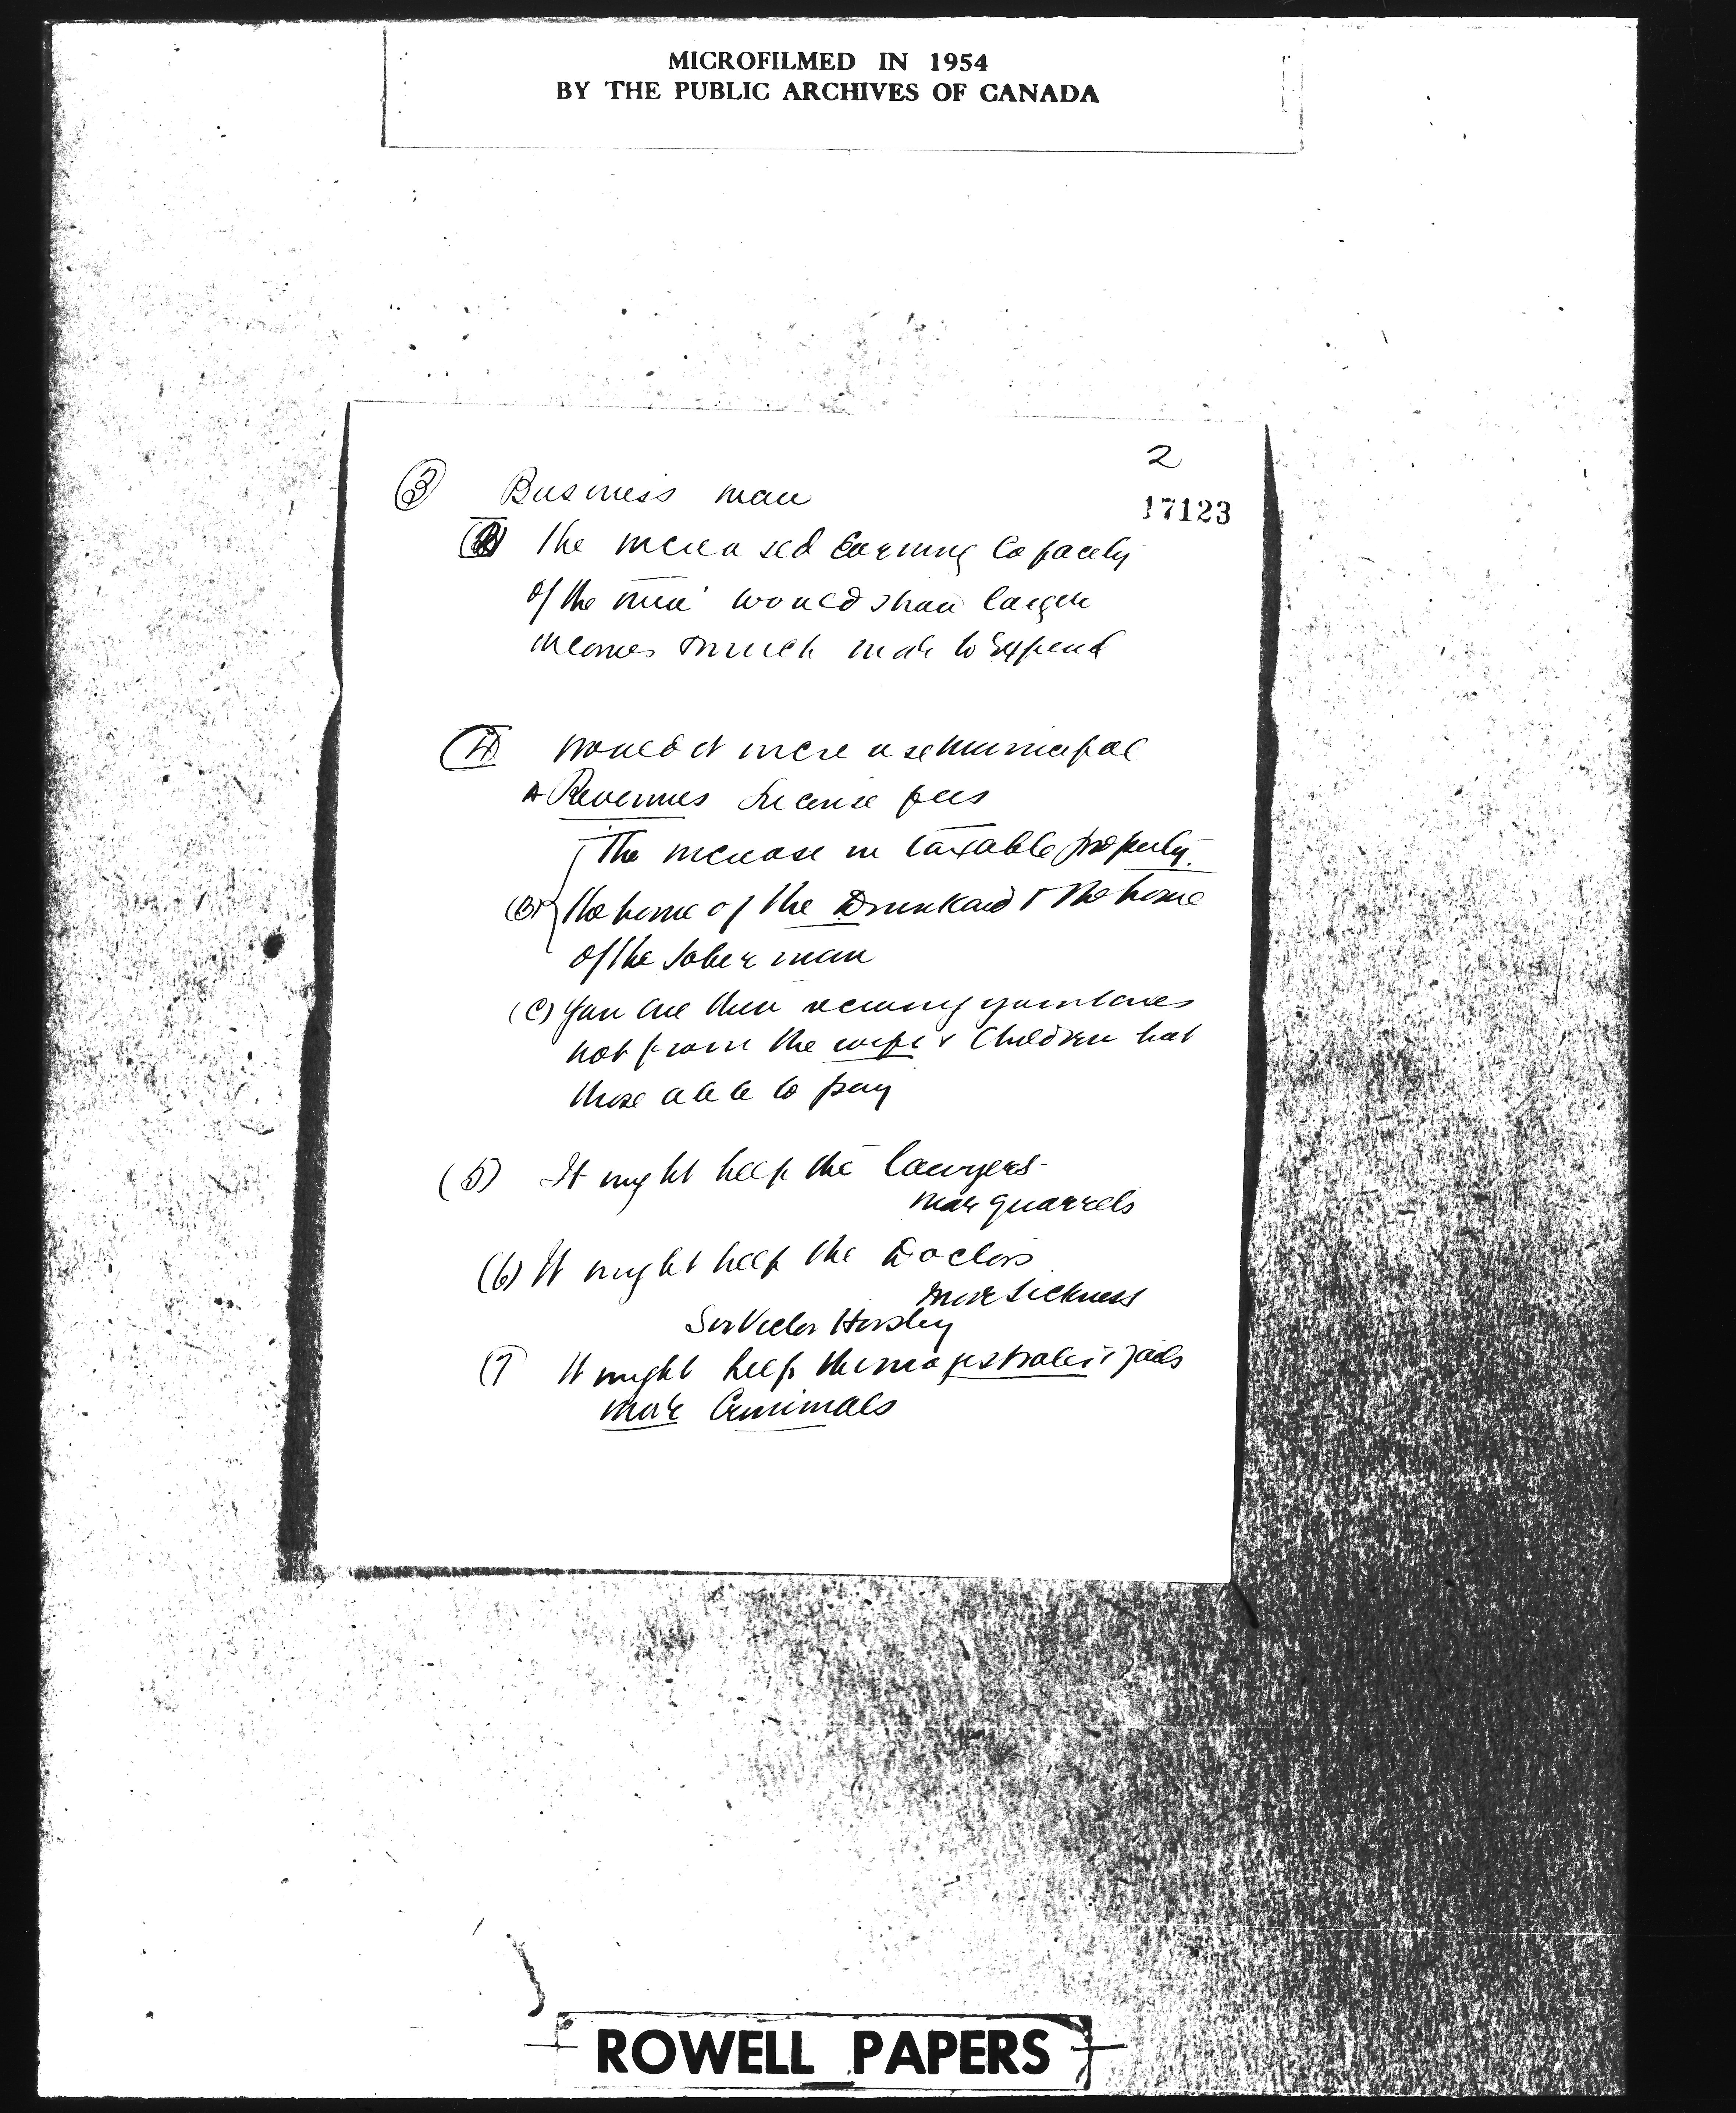 MICROFILMED IN 1954
BY THE PUBLIC ARCHIVES OF CANADA
2
17123
(3) Business man
The increased Earning Capacity
of the men would mean larger
incomes & much more to Expend
(4) Would it increase Municipal
A Revenues License fees
The increase in taxable property
(B) the home of the Drunkard & the home
of the sober man
(C) You are then your taxes
not from the wife & Children but
those able to pay
(5) It might help the Lawyers-
more quarrels
(6) It might help the Doctors
more sickness
Sir Victor Horsley
(7 It might help the magistrates & jails
more Criminals
ROWELL PAPERS